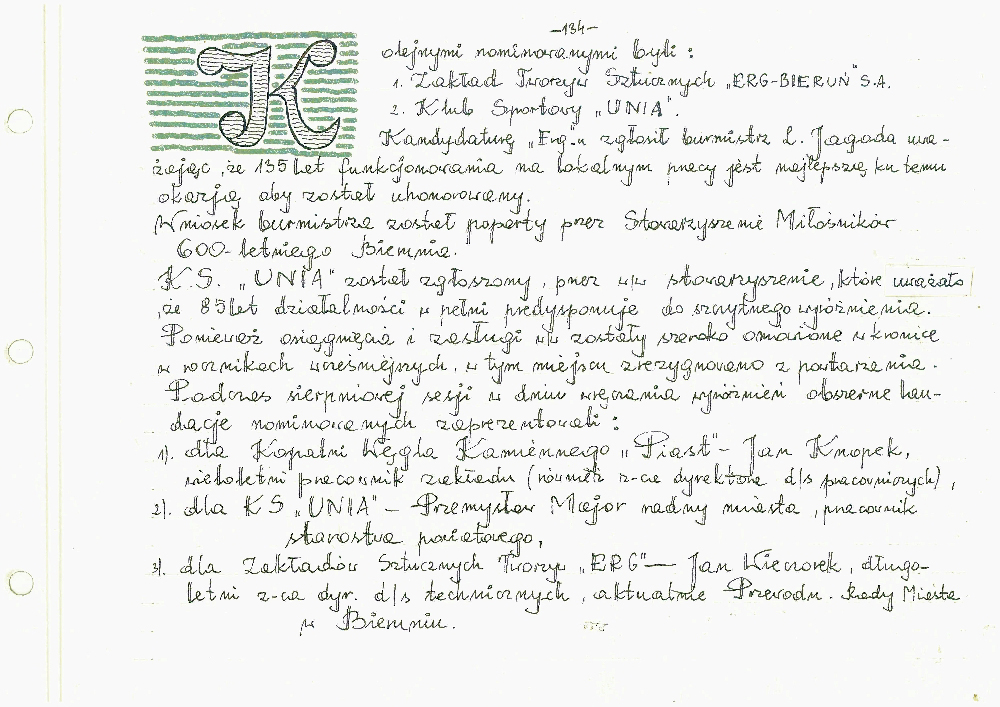 -134-
Kolejnymi nominowanymi byli:
1. Zakład Tworzyw Sztucznych „ERG-BIERUŃ" S.A.
2. Klub Sportowy „UNIA".
Kandydaturę „Erg"-u zgłosił burmistrz L. Jagoda uwa-
żając, że 135 let funkcjonowania na lokalnym pracy jest najlepszą ku temu
okazją aby został uhonorowany.
Wniosek burmistrza został poparty przez Stowarzyszenie Miłośników
600-letniego Bierunia.
K.S. „UNIA" został zgłoszony, przez w/w stowarzyszenie, które uważało
,że 85 let działalności w pełni predysponuje do szczytnego wyróżnienia.
Ponieważ osiągnięcia i zasługi w/w zostały szeroko omówione w kronice
w rocznikach wcześniejszych, w tym miejscu zrezygnowano z powtarzania.
Podczas sierpniowej sesji w dniu wręczania wyróżnień obszerne lau-
dacje nominowanych zaprezentowali:
1). dla Kopalni Węgla Kamiennego „Piast" - Jan Knopek,
wieloletni pracownik zakładu (również z-ca dyrektora d/s pracowniczych),
2). dla KS „UNIA" - Przemysław Major radny miasta, pracownik
starostwa powiatowego,
3). dla Zakładów Sztucznych Tworzyw „ERG" - Jan Wieczorek, długo-
letni z-ca dyr. d/s technicznych, aktualnie Przewodn. Rady Miasta
w Bieruniu.